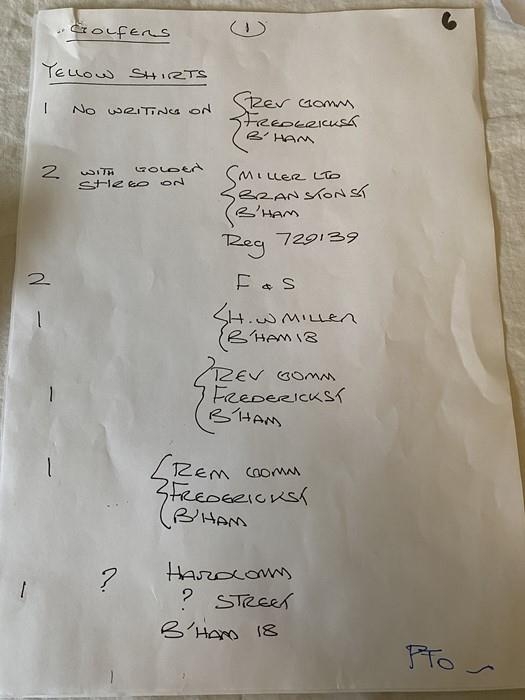 GOLFERS (1) 6
YELLOW SHIRTS
1 NO WRITING ON { REV GOMM
FREDERICK ST
B'HAM
2 WITH GOLDEN { MILLER LTD
ON BRANSTON ST
B'HAM
Reg 729139
2 F & S
1 { H.W MILLER
B'HAM 18
{ REV GOMM
1 FREDERICK ST
B'HAM
1 { REM GOMM
FREDERICK ST
B'HAM
? HARDCOMM
1 ? STREET
B'HAM 18
PTO